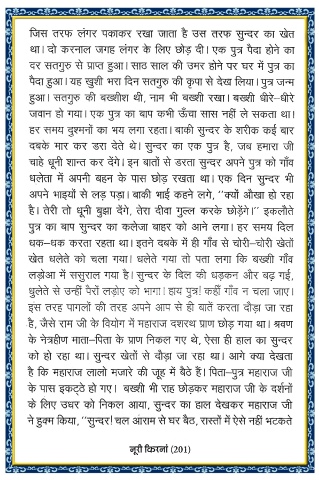 जिस तरफ लंगर पकाकर रखा जाता है उस तरफ सुन्दर का खेत
था। दो करनाल जगह लंगर के लिए छोड़ दी। एक पुत्र पैदा होने का
दर सतगुरु से प्राप्त हुआ। साठ साल की उमर होने पर घर में पुत्र का
पैदा हुआ। यह खुशी भरा दिन सतगुरु की कृपा से देख लिया। पुत्र जन्म
हुआ। सतगुरु की बख्शीश थी, नाम भी बख्शी रखा। बख्शी धीरे-धीरे
जवान हो गया। एक पुत्र का बाप कभी ऊँचा सास नहीं ले सकता था।
हर समय दुश्मनों का भय लगा रहता। बाकी सुन्दर के शरीक कई बार
दबके मार कर डरा देते थे। सुन्दर का एक पुत्र है, जब हमारा जी
चाहे धूनी शान्त कर देंगे। इन बातों से डरता सुन्दर अपने पुत्र को गाँव
धलेता में अपनी बहन के पास छोड़ रखता था। एक दिन सुन्दर भी
अपने भाइयों से लड़ पड़ा। बाकी भाई कहने लगे, ''क्यों औखा हो रहा
है। तेरी तो धूनी बुझा देंगे, तेरा दीवा गुल्ल करके छोड़ेंगे।'' इकलौते
पुत्र का बाप सुन्दर का कलेजा बाहर को आने लगा। हर समय दिल
धक-धक करता रहता था। इतने दबके में ही गाँव से चोरी-चोरी खेतों
खेत धलेते को चला गया। धलेते गया तो पता लगा कि बख्शी गाँव
लड़ोआ में ससुराल गया है। सुन्दर के दिल की धड़कन और बढ़ गई,
धुलेते से उन्हीं पैरों लड़ोए को भागा। हाय पुत्र! कहीं गाँव न चला जाए।
इस तरह पागलों की तरह अपने आप से ही बातें करता दौड़ा जा रहा
है, जैसे राम जी के वियोग में महाराज दशरथ प्राण छोड़ गया था। श्रवण
के नेत्रहीण माता-पिता के प्राण निकल गए थे, ऐसा ही हाल का सुन्दर
को हो रहा था। सुन्दर खेतों से दौड़ा जा रहा था। आगे क्या देखता
है कि महाराज लालो मजारे की जूह में बैठे हैं। पिता-पुत्र महाराज जी
के पास इकट्ठे हो गए। बख्शी भी राह छोड़कर महाराज जी के दर्शनों
के लिए उधर को निकल आया, सुन्दर का हाल देखकर महाराज जी
ने हुक्म किया, ''सुन्दर! चल आराम से घर बैठ, रास्तों में ऐसे नहीं भटकते
नूरी किरनां (201)